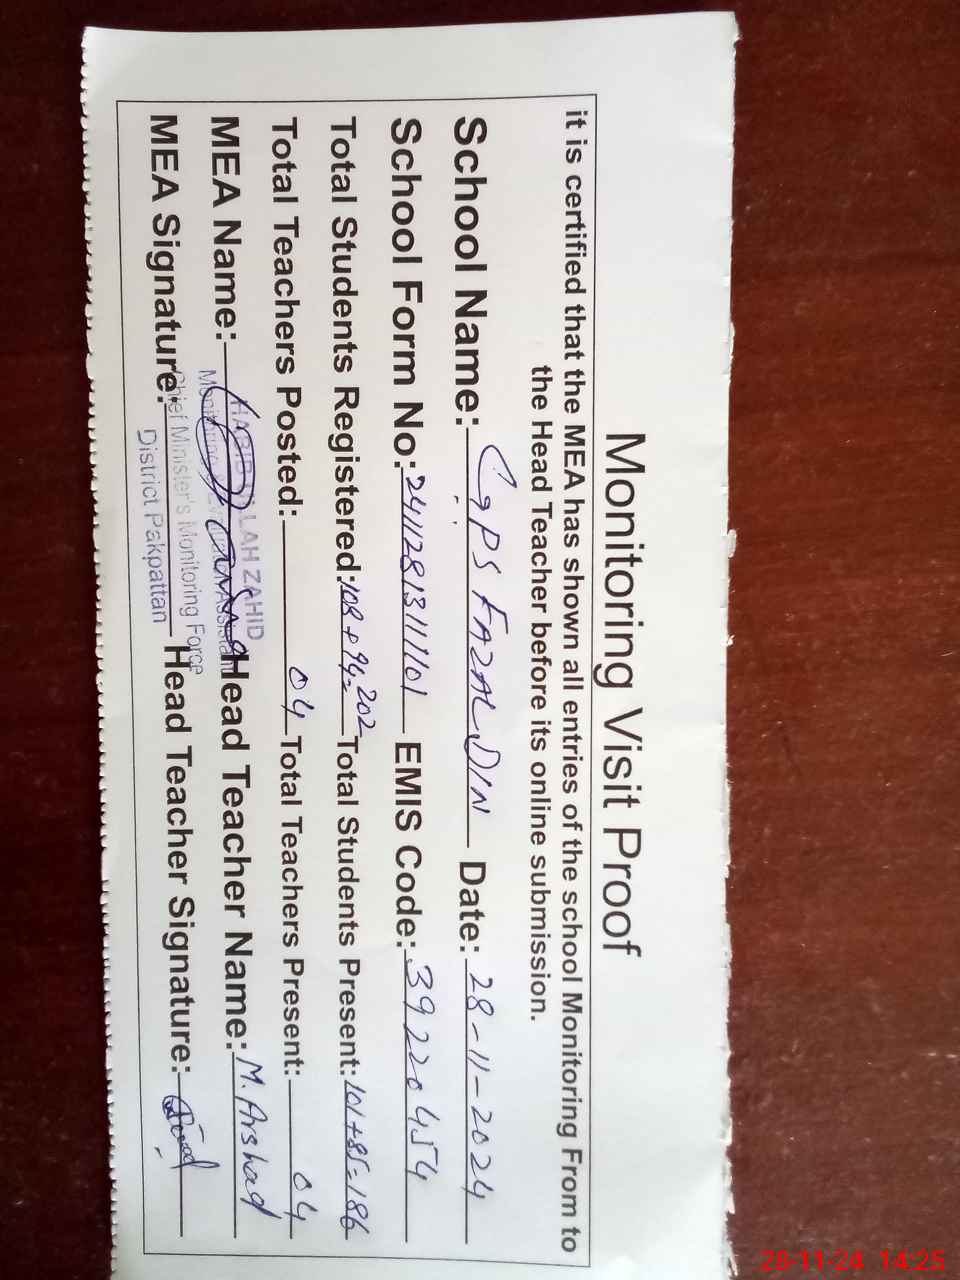 Monitoring Visit Proof
it is certified that the MEA has shown all entries of the school Monitoring From to
the Head Teacher before its online submission.
School Name: GPS FAZAL DIN Date: 28-11-2024
School Form No: EMIS Code: 39220454
Total Students Registered: 108+94=202 Total Students Present: 101+85=186
Total Teachers Posted: 04 Total Teachers Present: 04
MEA Name: Head Teacher Name: M. Arshad
MEA Signature: Head Teacher Signature:
HABIB ULLAH ZAHID
Monitoring
Chief Minister's Monitoring Force
District Pakpattan
28-11-24 14:25